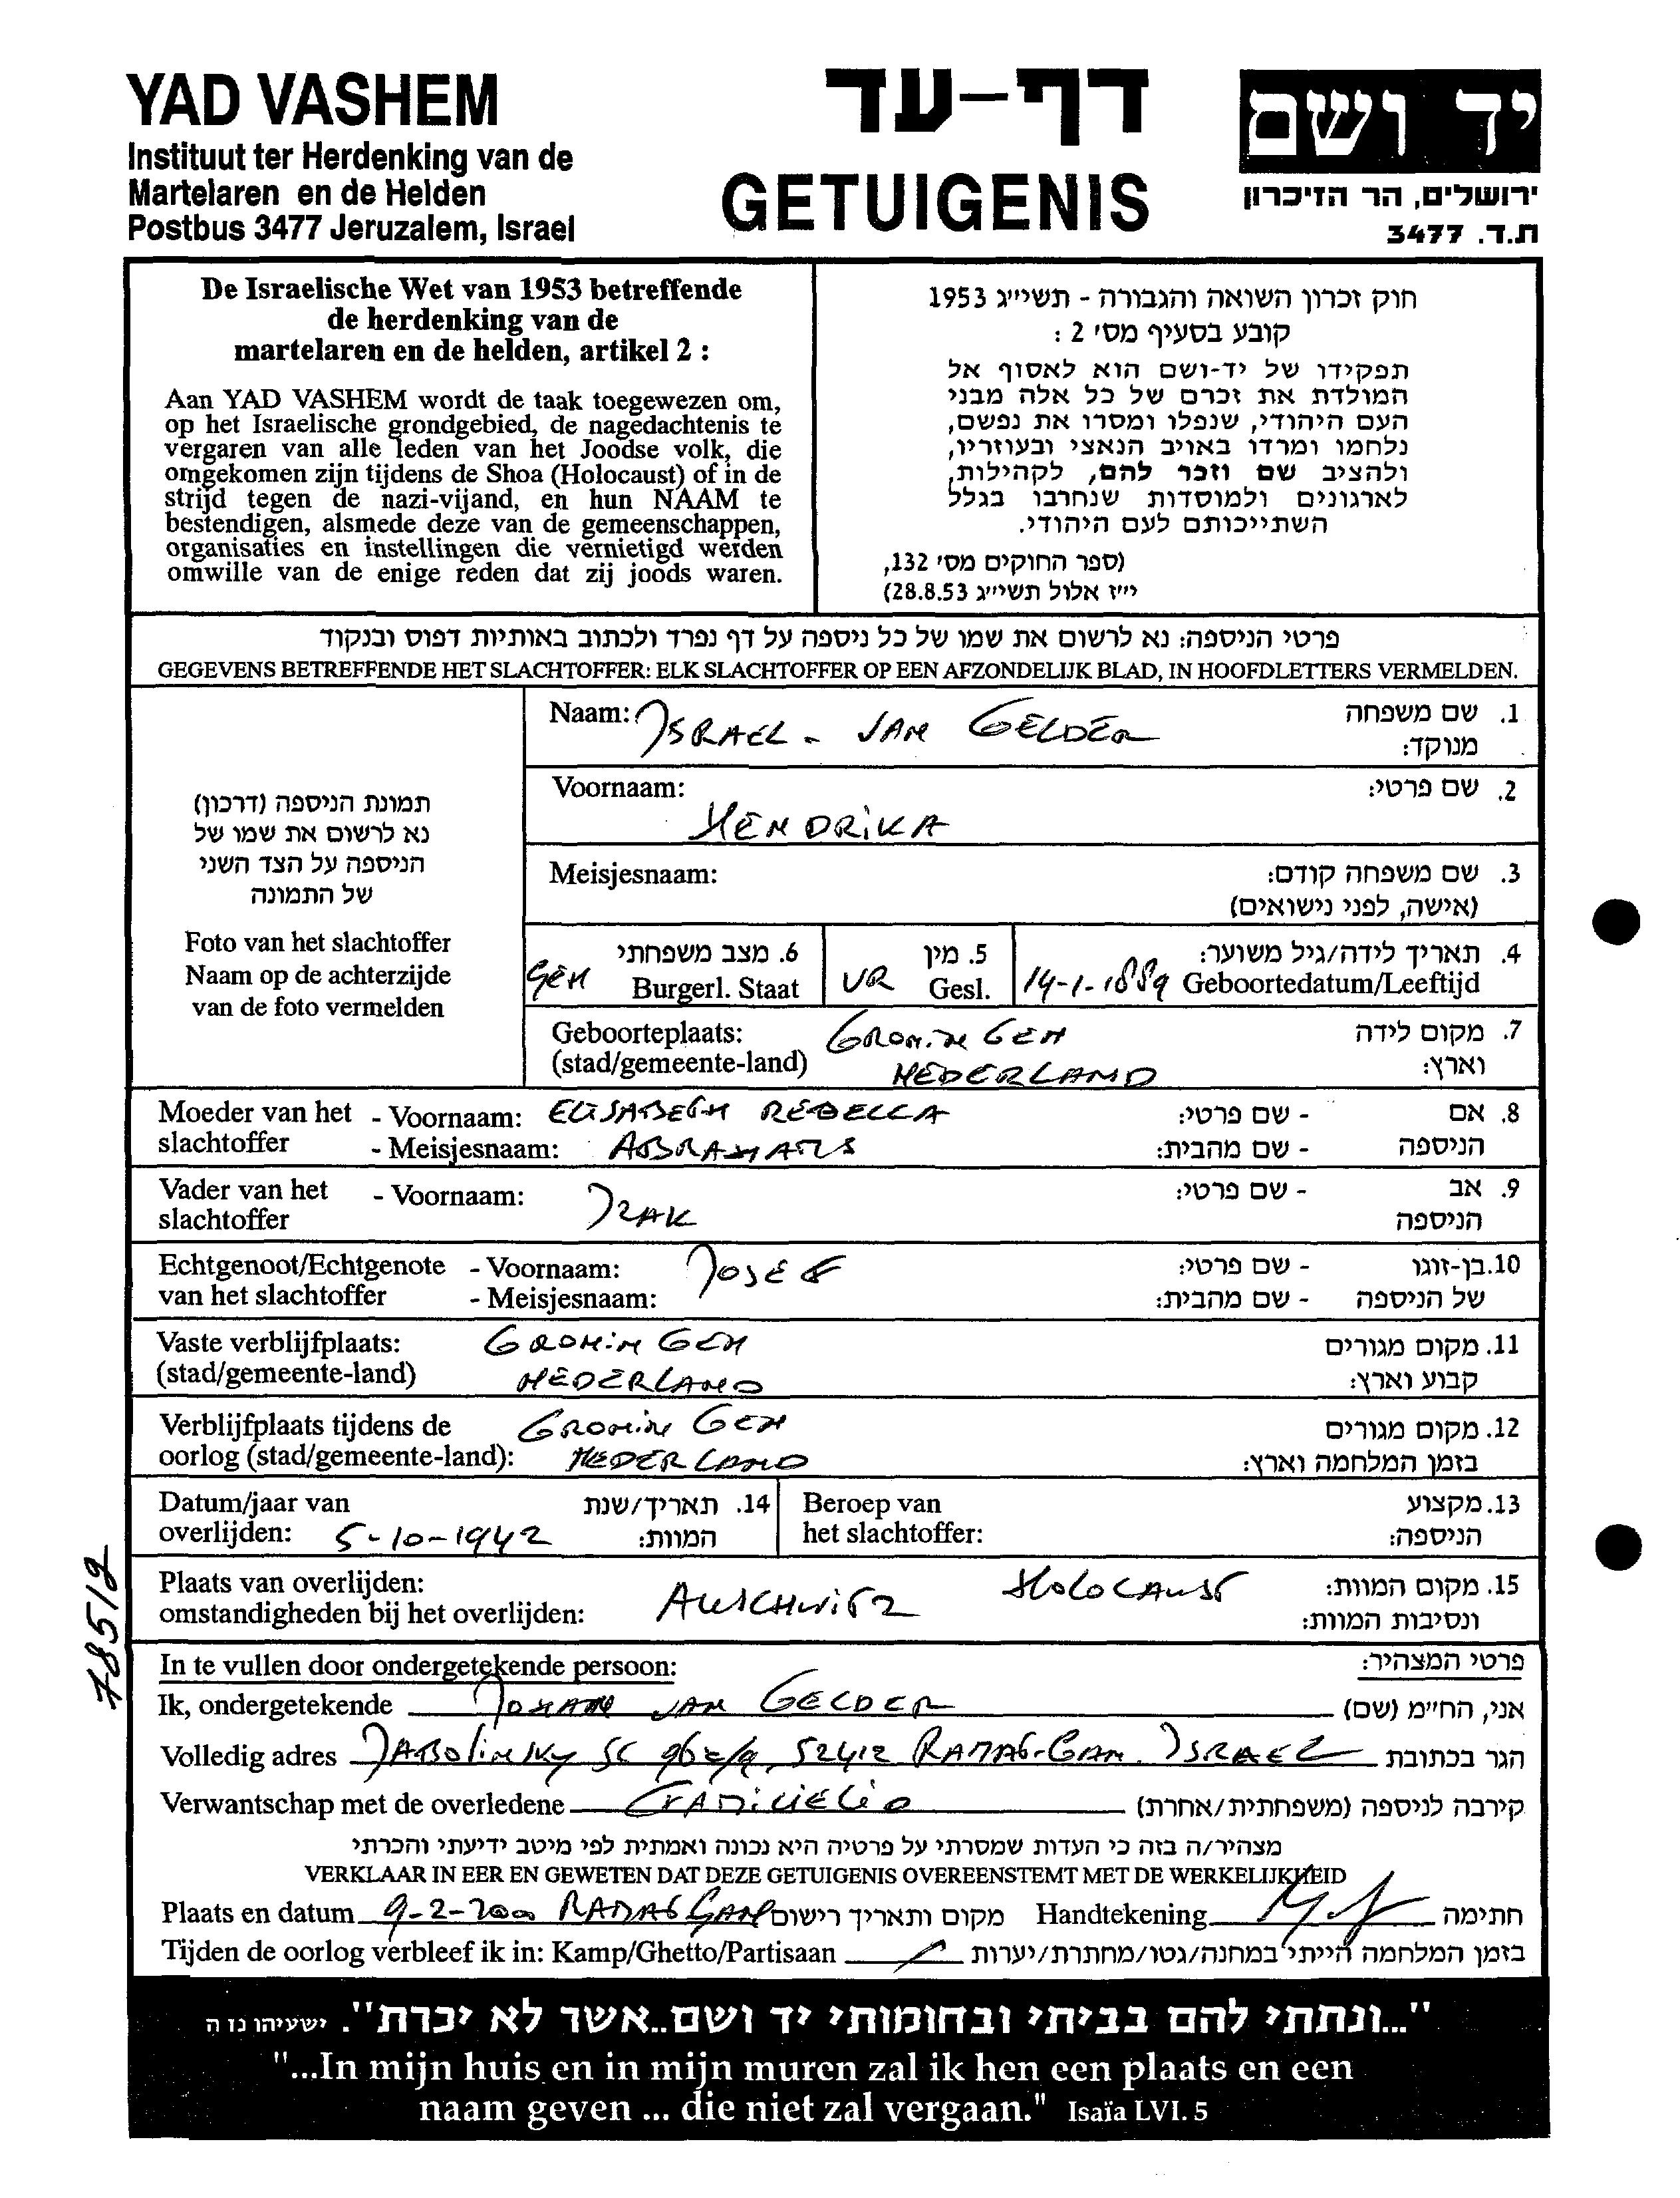 YAD VASHEM
Instituut ter Herdenking van de
Martelaren en de Helden
Postbus 3477 Jeruzalem, Israel
דף-עד
GETUIGENIS
יד ושם
ירושלים, הר הזיכרון
ת.ד. 3477
De Israelische Wet van 1953 betreffende
de herdenking van de
martelaren en de helden, artikel 2 :
Aan YAD VASHEM wordt de taak toegewezen om,
op het Israelische grondgebied, de nagedachtenis te
vergaren van alle leden van het Joodse volk, die
omgekomen zijn tijdens de Shoa (Holocaust) of in de
strijd tegen de nazi-vijand, en hun NAAM te
bestendigen, alsmede deze van de gemeenschappen,
organisaties en instellingen die vernietigd werden
omwille van de enige reden dat zij joods waren.
חוק זכרון השואה והגבורה - תשי״ג 1953
קובע בסעיף מס׳ 2 :
תפקידו של יד-ושם הוא לאסוף אל
המולדת את זכרם של כל אלה מבני
העם היהודי, שנפלו ומסרו את נפשם,
נלחמו ומרדו באויב הנאצי ובעוזריו,
ולהציב שם וזכר להם, לקהילות,
לארגונים ולמוסדות שנחרבו בגלל
השתייכותם לעם היהודי.
(ספר החוקים מס׳ 132,
י״ז אלול תשי״ג 28.8.53)
פרטי הניספה: נא לרשום את שמו של כל ניספה על דף נפרד ולכתוב באותיות דפוס ובנקוד
GEGEVENS BETREFFENDE HET SLACHTOFFER: ELK SLACHTOFFER OP EEN AFZONDELIJK BLAD, IN HOOFDLETTERS VERMELDEN.
תמונת הניספה (דרכון)
נא לרשום את שמו של
הניספה על הצד השני
של התמונה
Foto van het slachtoffer
Naam op de achterzijde
van de foto vermelden
Naam: ISRAEL - VAN GELDER 1. שם משפחה
מנוקד:
Voornaam: 2. שם פרטי:
HENDRIKA
Meisjesnaam: 3. שם משפחה קודם:
(אישה, לפני נישואים)
GEH 6. מצב משפחתי
Burgerl. Staat
VR 5. מין
Gesl.
14-1-1889 4. תאריך לידה/גיל משוער:
Geboortedatum/Leeftijd
Geboorteplaats: GRONINGEN 7. מקום לידה
(stad/gemeente-land) NEDERLAND וארץ:
Moeder van het - Voornaam: ELISABETH REBECCA - שם פרטי: 8. אם
slachtoffer - Meisjesnaam: ABRAHAMS - שם מהבית: הניספה
Vader van het - Voornaam: IZAK - שם פרטי: 9. אב
slachtoffer הניספה
Echtgenoot/Echtgenote - Voornaam: JOSEF - שם פרטי: 10. בן-זוגו
van het slachtoffer - Meisjesnaam: - שם מהבית: של הניספה
Vaste verblijfplaats: GRONINGEN 11. מקום מגורים
(stad/gemeente-land) NEDERLAND קבוע וארץ:
Verblijfplaats tijdens de GRONINGEN 12. מקום מגורים
oorlog (stad/gemeente-land): NEDERLAND בזמן המלחמה וארץ:
Datum/jaar van 14. תאריך/שנת
overlijden: 5-10-1942 המוות:
Beroep van 13. מקצוע
het slachtoffer: הניספה:
Plaats van overlijden: 15. מקום המוות:
omstandigheden bij het overlijden: AUSCHWITZ HOLOCAUST ונסיבות המוות:
78512
In te vullen door ondergetekende persoon: פרטי המצהיר:
Ik, ondergetekende JOHAN VAN GELDER אני, הח״מ (שם)
Volledig adres 52412 RAMAT-GAN. ISRAEL הגר בכתובת
Verwantschap met de overledene FAMILIELID קירבה לניספה (משפחתית/אחרת)
מצהיר/ה בזה כי העדות שמסרתי על פרטיה היא נכונה ואמתית לפי מיטב ידיעתי והכרתי
VERKLAAR IN EER EN GEWETEN DAT DEZE GETUIGENIS OVEREENSTEMT MET DE WERKELIJKHEID
Plaats en datum 9-2-2000 RAMAT GAN מקום ותאריך רישום Handtekening חתימה
Tijden de oorlog verbleef ik in: Kamp/Ghetto/Partisaan בזמן המלחמה הייתי במחנה/גטו/מחתרת/יערות
"...ונתתי להם בביתי ובחומותי יד ושם..אשר לא יכרת". ישעיהו נו ה
"...In mijn huis en in mijn muren zal ik hen een plaats en een
naam geven ... die niet zal vergaan." Isaïa LVI. 5